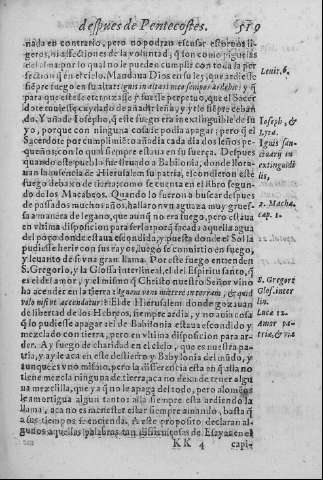 despues de Pentecostes. 519
nada en contrario, pero no podran escusar estoruos li-
geros, ni affectiones de la voluntad, que son como piguelas
del alma por lo qual no le pueden cumplir con toda la per
fection que en el cielo. Mandaua Dios en su ley, que ardiesse
siempre fuego en su altar: ignis in altari meo semper ardebit: y
para que este se cuente assi y fuesse perpetuo, que el Sacer
dote tuuiesse cuydado de añadir leña, y si le siempre ceban
do. Y añade Iosepho, que este fuego era inextinguible de su
yo, porque con ninguna cosa se podia apagar; pero que el
Sacerdote por cumplimiento añadia cada dia dos leños pe-
queños, con lo qual siempre estaua en su fuerça. Despues
quando este pueblo fue lleuado a Babilonia, donde llora-
uan la ausencia de Hierusalem su patria, escondieron este
fuego debaxo de tierra, como se cuenta en el libro segun-
do de los Macabeos. Quando lo fueron a buscar despues
de passados muchos años, hallaron vn agua muy grues-
sa a manera de legano, que aunque no era fuego, pero estaua
en vltima disposicion para serlo: porque sacada aquella agua
del poço donde estaua escondida, y puesta donde el Sol la
pudiesse herir con sus rayos, luego se conuirtio en fuego,
y leuanto de si vna gran llama. Por este fuego entienden
S. Gregorio, y la Glossa interlineal, el del Espiritu santo, que
es el del amor, y el mismo que Christo nuestro Señor vino
a encender en la tierra: ignem veni mittere in terram, & quid
volo nisi vt accendatur? El de Hierusalem donde gozauan
de libertad de los Hebreos, siempre ardia, y no auia cosa
que lo pudiesse apagar: el de Babilonia estaua escondido y
mezclado con tierra, pero en vltima disposicion para ar-
der. Ay fuego de charidad en el cielo, que es nuestra pa-
tria, y ay le aca en este destierro y Babylonia del mundo, y
aunque es vno mismo, pero la differencia esta en que alla no
tiene mezcla ninguna de tierra, aca no dexa de tener algu
na mezclilla, que ya que no le apaga del todo, pero alomenos
le amortigua algun tanto: alla siempre esta ardiendo la
llama, aca no es menester estar siempre amando, basta que
a sus tiempos se encienda. A este proposito declaran al-
gunos aquellas palabras tan dificultosas de Esayas en el
KK 4 capi-
Leuit. 6.
Ioseph, &
Lyra.
Ignis san-
ctuarij in
extinguibi
lis,
2. Macha.
cap. 1.
S. Gregor.
Glos. inter
lin.
Luca 12.
Amor pa-
tria, & via